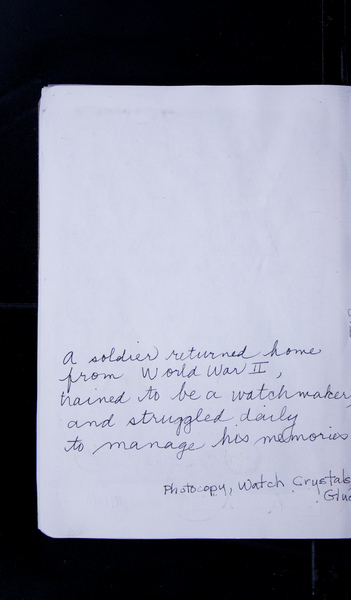 a soldier returned home
from World War II,
trained to be a watchmaker,
and struggled daily
to manage his memories
Photocopy, Watch Crystals